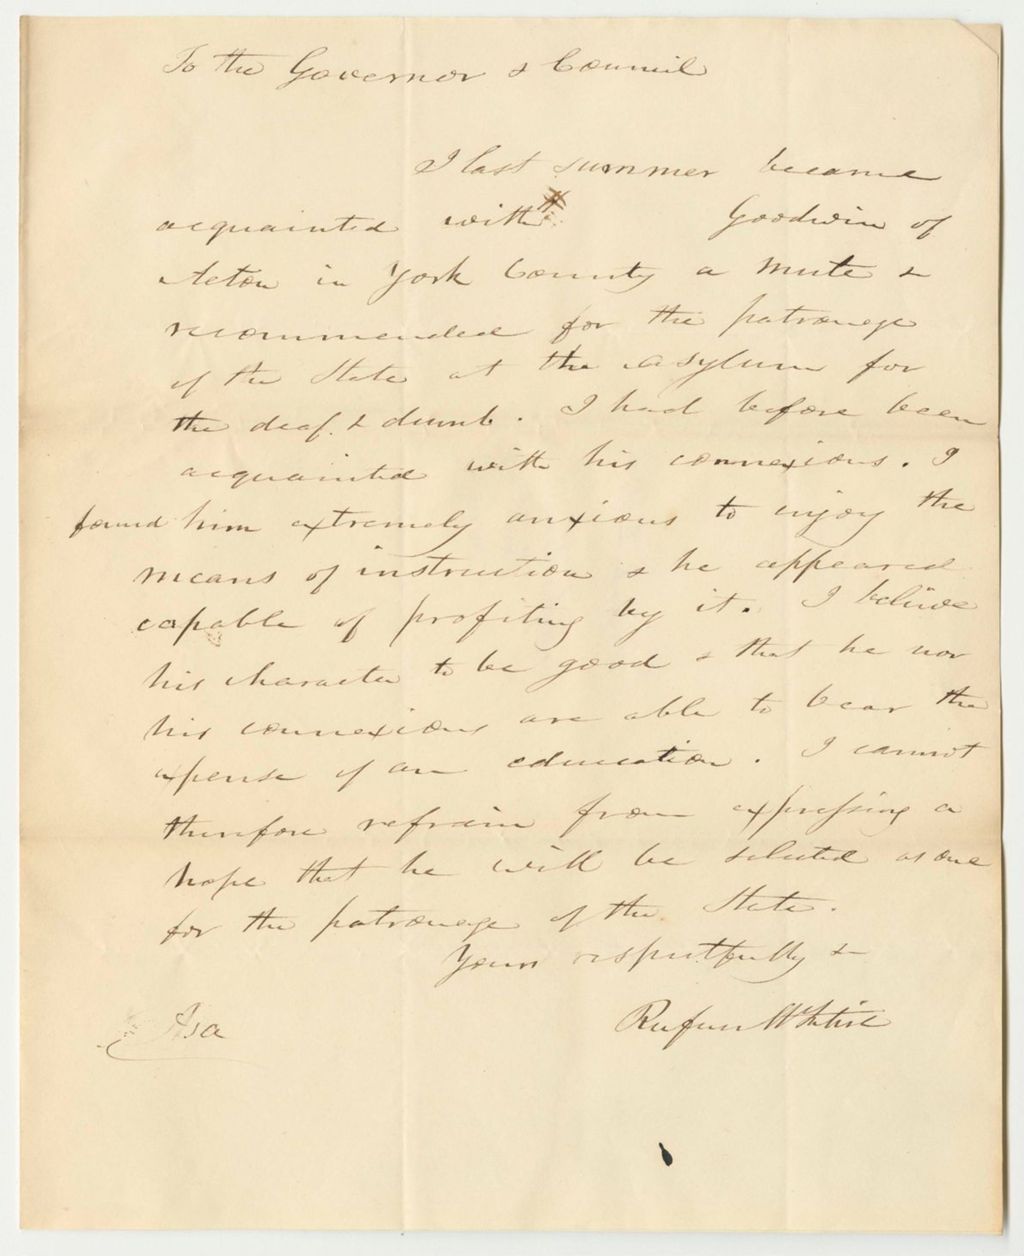 To the Governor & Council
I last summer became
acquainted with # Goodwin of
Acton in York County a mute &
recommended for the patronage
of the State at the asylum for
the deaf & dumb. I had before been
acquainted with his connexions. I
found him extremely anxious to enjoy the
means of instruction & he appeared
capable of profiting by it. I believe
his character to be good & that he nor
his connexions are able to bear the
expense of an education. I cannot
therefore refrain from expressing a
hope that he will be selected as one
for the patronage of the State.
Yours respectfully &
Rufus McIntire
# Asa